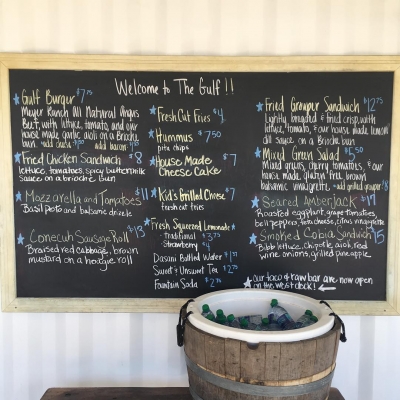 Welcome to The Gulf!!
Gulf Burger $7.75
Meyer Ranch All Natural Angus
Beef, with lettuce, tomato, and our
house made garlic aioli on a Brioche
bun. add bacon $
Fried Chicken Sandwich $8
lettuce, tomatoes, spicy buttermilk
sauce on a brioche bun
Mozzarella and Tomatoes $11
Basil pesto and balsamic drizzle
Conecuh Sausage Roll $13
Braised red cabbage, brown
mustard on a hoagie roll
Fresh Cut Fries $4
Hummus $7.50
pita chips
House Made $7
Cheese Cake
Kid's Grilled Cheese $7
fresh cut fries
Fresh Squeezed Lemonade
-traditional $3.75
-Strawberry $4
Dasani Bottled Water
Sweet & Unsweet Tea
Fountain Soda
Fried Grouper Sandwich $12.75
Lightly breaded & fried crisp, with
lettuce, tomato, & our house made lemon
dill sauce on a Brioche bun
Mixed Green Salad $5.50
Mixed greens, cherry tomatoes, & our
house made, gluten free, brown
balsamic vinaigrette. add grilled grouper $8
Seared AmberJack $17
Roasted eggplant, grape tomatoes,
bell peppers, feta cheese, citrus vinaigrette
Smoked Cobia Sandwich $15
Bibb lettuce, chipotle aioli, red
wine onions, grilled pineapple
our taco & raw bar are now open
on the west dock!